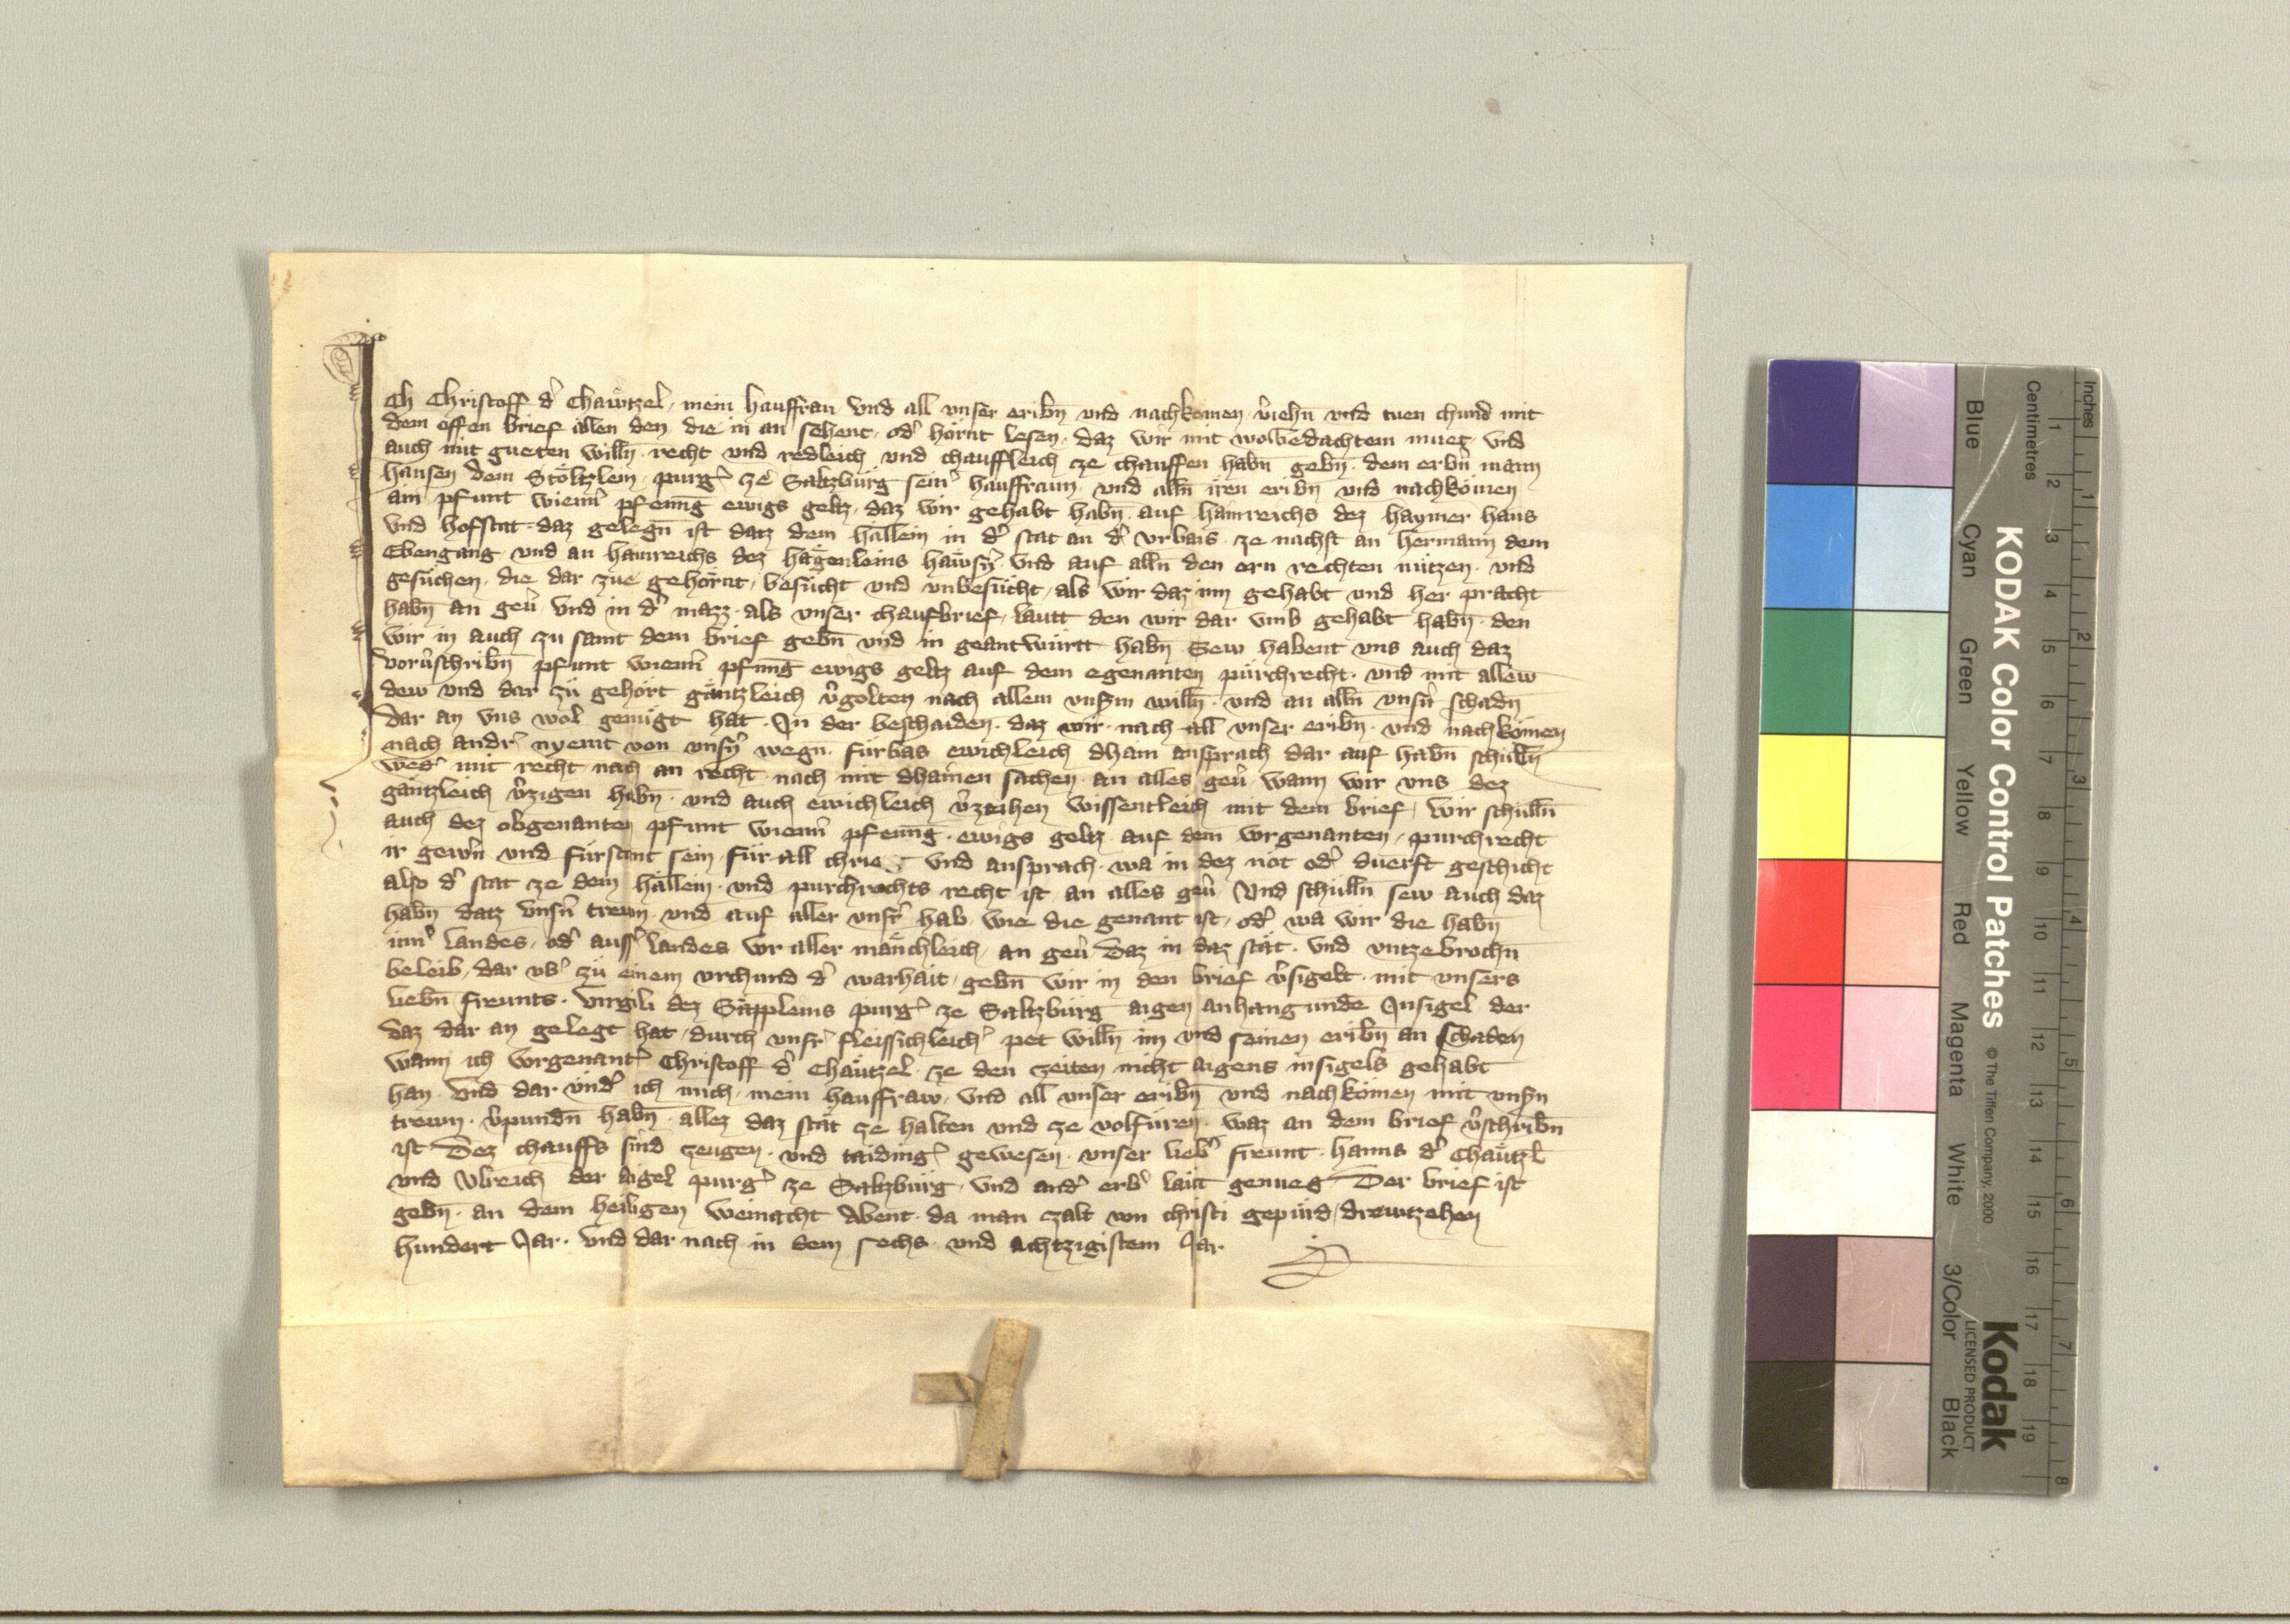 Ich Christoff d' Chäwtzel, mein hausfrau vnd all vnser eribn̄ vnd nachkomen v'iehn vnd tuen chund mit
dem offen brief allen den, die in an sehent, od' hörnt lesen, daz wir mit wolbedachtem muet, vnd
auch mit gueten willn̄ recht vnd redleich vnd chauffleich ze chauffen habn̄ gebn̄ dem erbn̄ mann
hansen dem Stöltzlein purg' ze Saltzburg sein' hausfraun, vnd alln̄ iren eribn̄ vnd nachkömen
ain pfunt wienn' pfenn̄g ewigs geltz, daz wir gehabt habn̄ auf hainreichs dez haymer haus
vnd hofstat, daz gelegn̄ ist datz dem hällein in d' stat an d' vrbais ze nachst an hermann dem
Ebengang vnd an hainreichs dez hägenleins häwsn̄ vnd auf alln̄ den ern rechten nützen vnd
gesüchen, die dar zue gehörnt, besücht vnd vnbesücht, als wir daz inn gehabt vnd her pracht
habn̄ an geu' vnd in d' mazz als vnser chaufbrief lautt den wir dar vmb gehabt habn̄ den
wir in auch zu samt dem brief gebn̄ vnd in geantwürtt habn̄ Sew habent vns auch daz
vorv'schribn̄ pfunt wienn' pfenn̄g ewigs geltz auf dem egenanten purchrecht vnd mit allew
dew vnd dar zü gehört gäntzleich v'golten nach allem vnsn̄ willn̄ vnd an alln̄ vnsn̄ schadn̄
dar an vns wol genügt hat. In der beschaiden daz wir nach all vnser eribn̄ vnd nachkömen
nach andr' nyemt von vnsn̄ wegn̄ fürbas ewichleich dhain ansprach dar auf habn̄ schulln̄
wed' mit recht nach an recht nach mit dhainen sachen an alles geu' wann wir vns dez
gäntzleich v'zigen habn̄ vnd auch ewichleich v'zeihen wissentleich mit dem brief, wir schulln̄
auch dez obgenanten pfunt wienn' pfenn̄g ewigs geltz auf dem vorgenanten purchrecht
ir gewn̄ vnd fürstant sein für all chrieg vnd ansprach wa in dez not od' duerft geschicht
also d' stat ze dem hällein vnd purchrechts recht ist an alles geu' Vnd schulln̄ sew auch daz
habn̄ datz vnsn̄ trewn vnd auf aller vnsr' hab wie die genant ist, od' wa wir die habn̄
inn' landes, od' auss' landes vor aller mänchleich, an geu' Daz in daz stät vnd vntzebrochn̄
beleib, dar vb' zü einem vrchund d' warhait, gebn̄ wir in den brief v'sigelt mit vnsers
liebn̄ freunts Virgili dez Säppleins purg' ze Saltzburg aigen anhangunde Insigel der
daz dar an gelegt hat durch vnsr' fleissichleich' pet willn̄ im vnd seinen eribn̄ an schaden
wann ich vorgenant' Christoff d' Chäutzel ze den zeiten nicht aigens insigels gehabt
han. vnd dar vnd' ich mich, mein hausfraw, vnd all vnser eribn̄ vnd nachkömen mit vnsn̄
trewn v'pundn̄ habn̄ allez daz stät ze halten vnd ze volfüren waz an dem brief v'schribn̄
ist Dez chauffs sind zeugen vnd taiding' gewesen vnser lieb' freunt hanns d' Chäutzl
vnd Vlreich der Aigel purg' ze Saltzburg vnd and' erb' läut genueg Der brief ist
gebn̄ an dem heiligen weinacht Abent da man zalt von christi gepürd, drewtzehen
hundert Jar. vnd dar nach in dem sechs vnd achtzigistem Jar.
KODAK Color Control Patches © The Tiffen Company, 2000 Kodak LICENSED PRODUCT
Blue Cyan Green Yellow Red Magenta White 3/Color Black
Centimetres 1 2 3 4 5 6 7 8 9 10 11 12 13 14 15 16 17 18 19
Inches 1 2 3 4 5 6 7 8